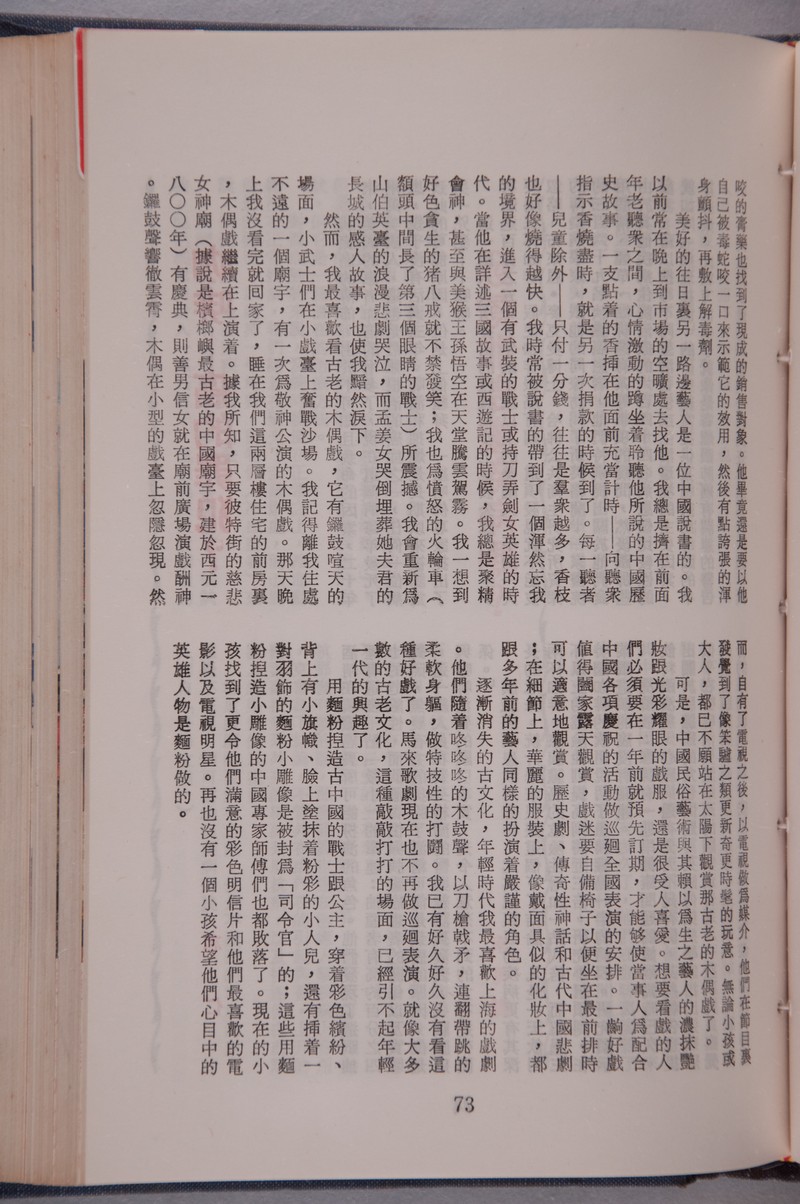 咬的膏藥也找到了現成的銷售對象。他畢竟還是要以他
自己被毒蛇咬一口來示範它的效用，然後有點誇張的渾
身顫抖，再敷上解毒劑。
美好的往日裏另一路邊藝人是一位中國說書的。我
以前常在晚上到市場的空曠處去找他。我總是擠在前面
年老聽衆之間，心情激動的蹲坐着聆聽他所說的中國歷
史故事。一支點着的香挿在他面前充當計時——向聽衆
指示香燒盡時，就是另一次捐款的時候到了。每一聽者
——兒童除外——只付一分錢，往往是羣衆越多，香枝
也好像燒得越快。我時常被說書的帶到了一個渾然忘我
的境界，進入一個有武裝的戰士或持刀弄劍女英雄的時
代。當他在詳述三國故事或西遊記的時候，我總是聚精
會神，甚至與美猴王孫悟空在天堂騰雲駕霧。我一想到
好色貪生的猪八戒就不禁發笑；我也爲憤怒的火輪車（
額頭中間長了第三個眼睛的戰士）所震撼。我會重新爲
山伯英臺的浪漫悲劇哭泣，而孟姜女哭倒埋葬她夫君的
長城的感人故事，也使我黯然淚下。
然而，我最喜歡看古老的木偶戲，它有鑼鼓喧天的
場面，小武士們在小戲臺上奮戰沙場。我記得離我住處
不遠的一個廟宇，有一次爲敬神公演的木偶戲。那天晚
上我沒看完就回家了，睡在我們這兩層樓住宅的前房裏
，木偶戲繼續在上演着。據我所知，只要彼特街的慈悲
女神廟（據說是檳榔嶼最古老的中國廟宇，建於西元一
八〇〇年）有慶典，則善男信女就在廟前廣場演戲酬神
。鑼鼓聲響徹雲霄，木偶在小型的戲臺上忽隱忽現。然
而，自有了電視之後，以電視做爲媒介，他們在節目裏
發覺到了像笨驢之類更新奇更時髦的玩意。無論小孩或
大人，都已不願站在太陽下觀賞那古老的木偶戲了。
可是，中國民俗藝術與其賴以爲生之藝人的濃抹艷
妝跟光彩耀眼的戲服，還是很受人喜愛。想要看戲的人
們必須要在一年前就預先訂期，才能够使當事人爲配合
中國各項慶祝的活動做巡廻全國表演的安排。一齣好戲
值得闔家露天觀賞，戲迷要自備椅子以便坐在最前排時
可以適意地觀賞。歷史劇、傳奇性神話和古代中國悲劇
；在細節上，華麗的服裝上，像戴面具似的化妝上，都
跟多年前的藝人同樣的扮演着嚴謹的角色。
逐漸消失的古文化，年輕時代我最喜歡上海的戲劇
。他們隨着咚咚咚的木鼓聲，以刀槍戟矛，連翻帶跳的
柔軟身軀，做特技性的打鬪。我已有好久好久沒有看這
種好戲了。馬來歌劇現在也不再做巡廻表演。就像大多
數的古老文化，這種敲敲打打的場面，已經引不起年輕
一代的興趣了。
用麵粉捏造古中國的戰士跟公主，穿着彩色繽紛、
背上有小旗幟、臉上塗抹着粉彩的小人兒，還有挿着一
對羽飾的麵粉小雕像是被封爲「司令官」的；這些用麵
粉捏造小雕像的中國專家師傅們也都敗落了。現在的小
孩找到了更令他們滿意的彩色明信片和他們最喜歡的電
影以及電視明星。再也沒有一個小孩希望他們心目中的
英雄人物是麵粉做的。
73